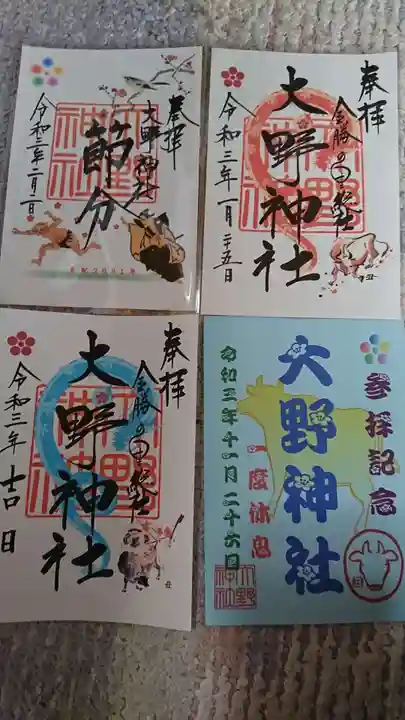 奉拝
大野神社
節分
令和三年二月二日
西暦2021年
奉拝
大野神社
令和三年一月二十五日
奉拝
大野神社
令和三年
日
参拝記念
大野神社
一度休息
令和三年十一月二十六日